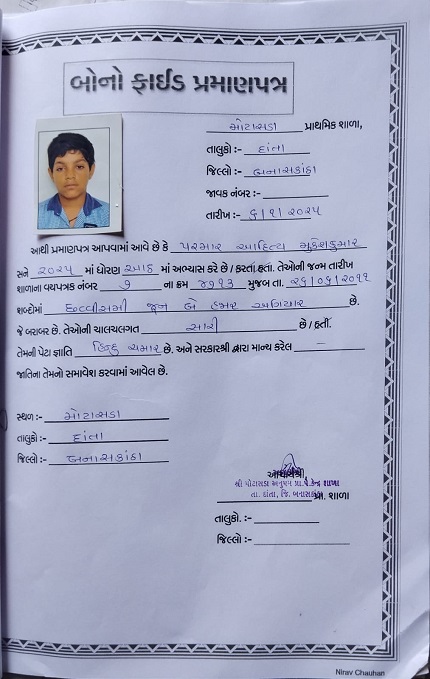 બોનો ફાઈડ પ્રમાણપત્ર
મોટાસડા પ્રાથમિક શાળા,
તાલુકો :- દાંતા
જિલ્લો :- બનાસકાંઠા
જાવક નંબર :-
તારીખ :- ૬/૧/૨૦૨૫
આથી પ્રમાણપત્ર આપવામાં આવે છે કે પરમાર આદિત્ય મુકેશકુમાર
સને ૨૦૨૫ માં ધોરણ આઠ માં અભ્યાસ કરે છે / કરતાં હતા. તેઓની જન્મ તારીખ
શાળાના વયપત્રક નંબર ૭ ના ક્રમ ૪૭૧૩ મુજબ તા. ૨૬/૦૬/૨૦૧૧
શબ્દોમાં છવ્વીસમી જૂન બે હજાર અગિયાર છે.
જે બરાબર છે. તેઓની ચાલચલગત સારી છે / હતી.
તેમની પેટા જ્ઞાતિ હિન્દુ ચમાર છે. અને સરકારશ્રી દ્વારા માન્ય કરેલ
જાતિના તેમનો સમાવેશ કરવામાં આવેલ છે.
સ્થળ :- મોટાસડા
તાલુકો :- દાંતા
જિલ્લો :- બનાસકાંઠા
આચાર્યશ્રી,
શ્રી મોટાસડા અનુપમ પ્રા.પે.કેન્દ્ર શાળા
તા. દાંતા, જિ. બનાસકાંઠા પ્રા. શાળા
તાલુકો. :-
જિલ્લો :-
Nirav Chauhan